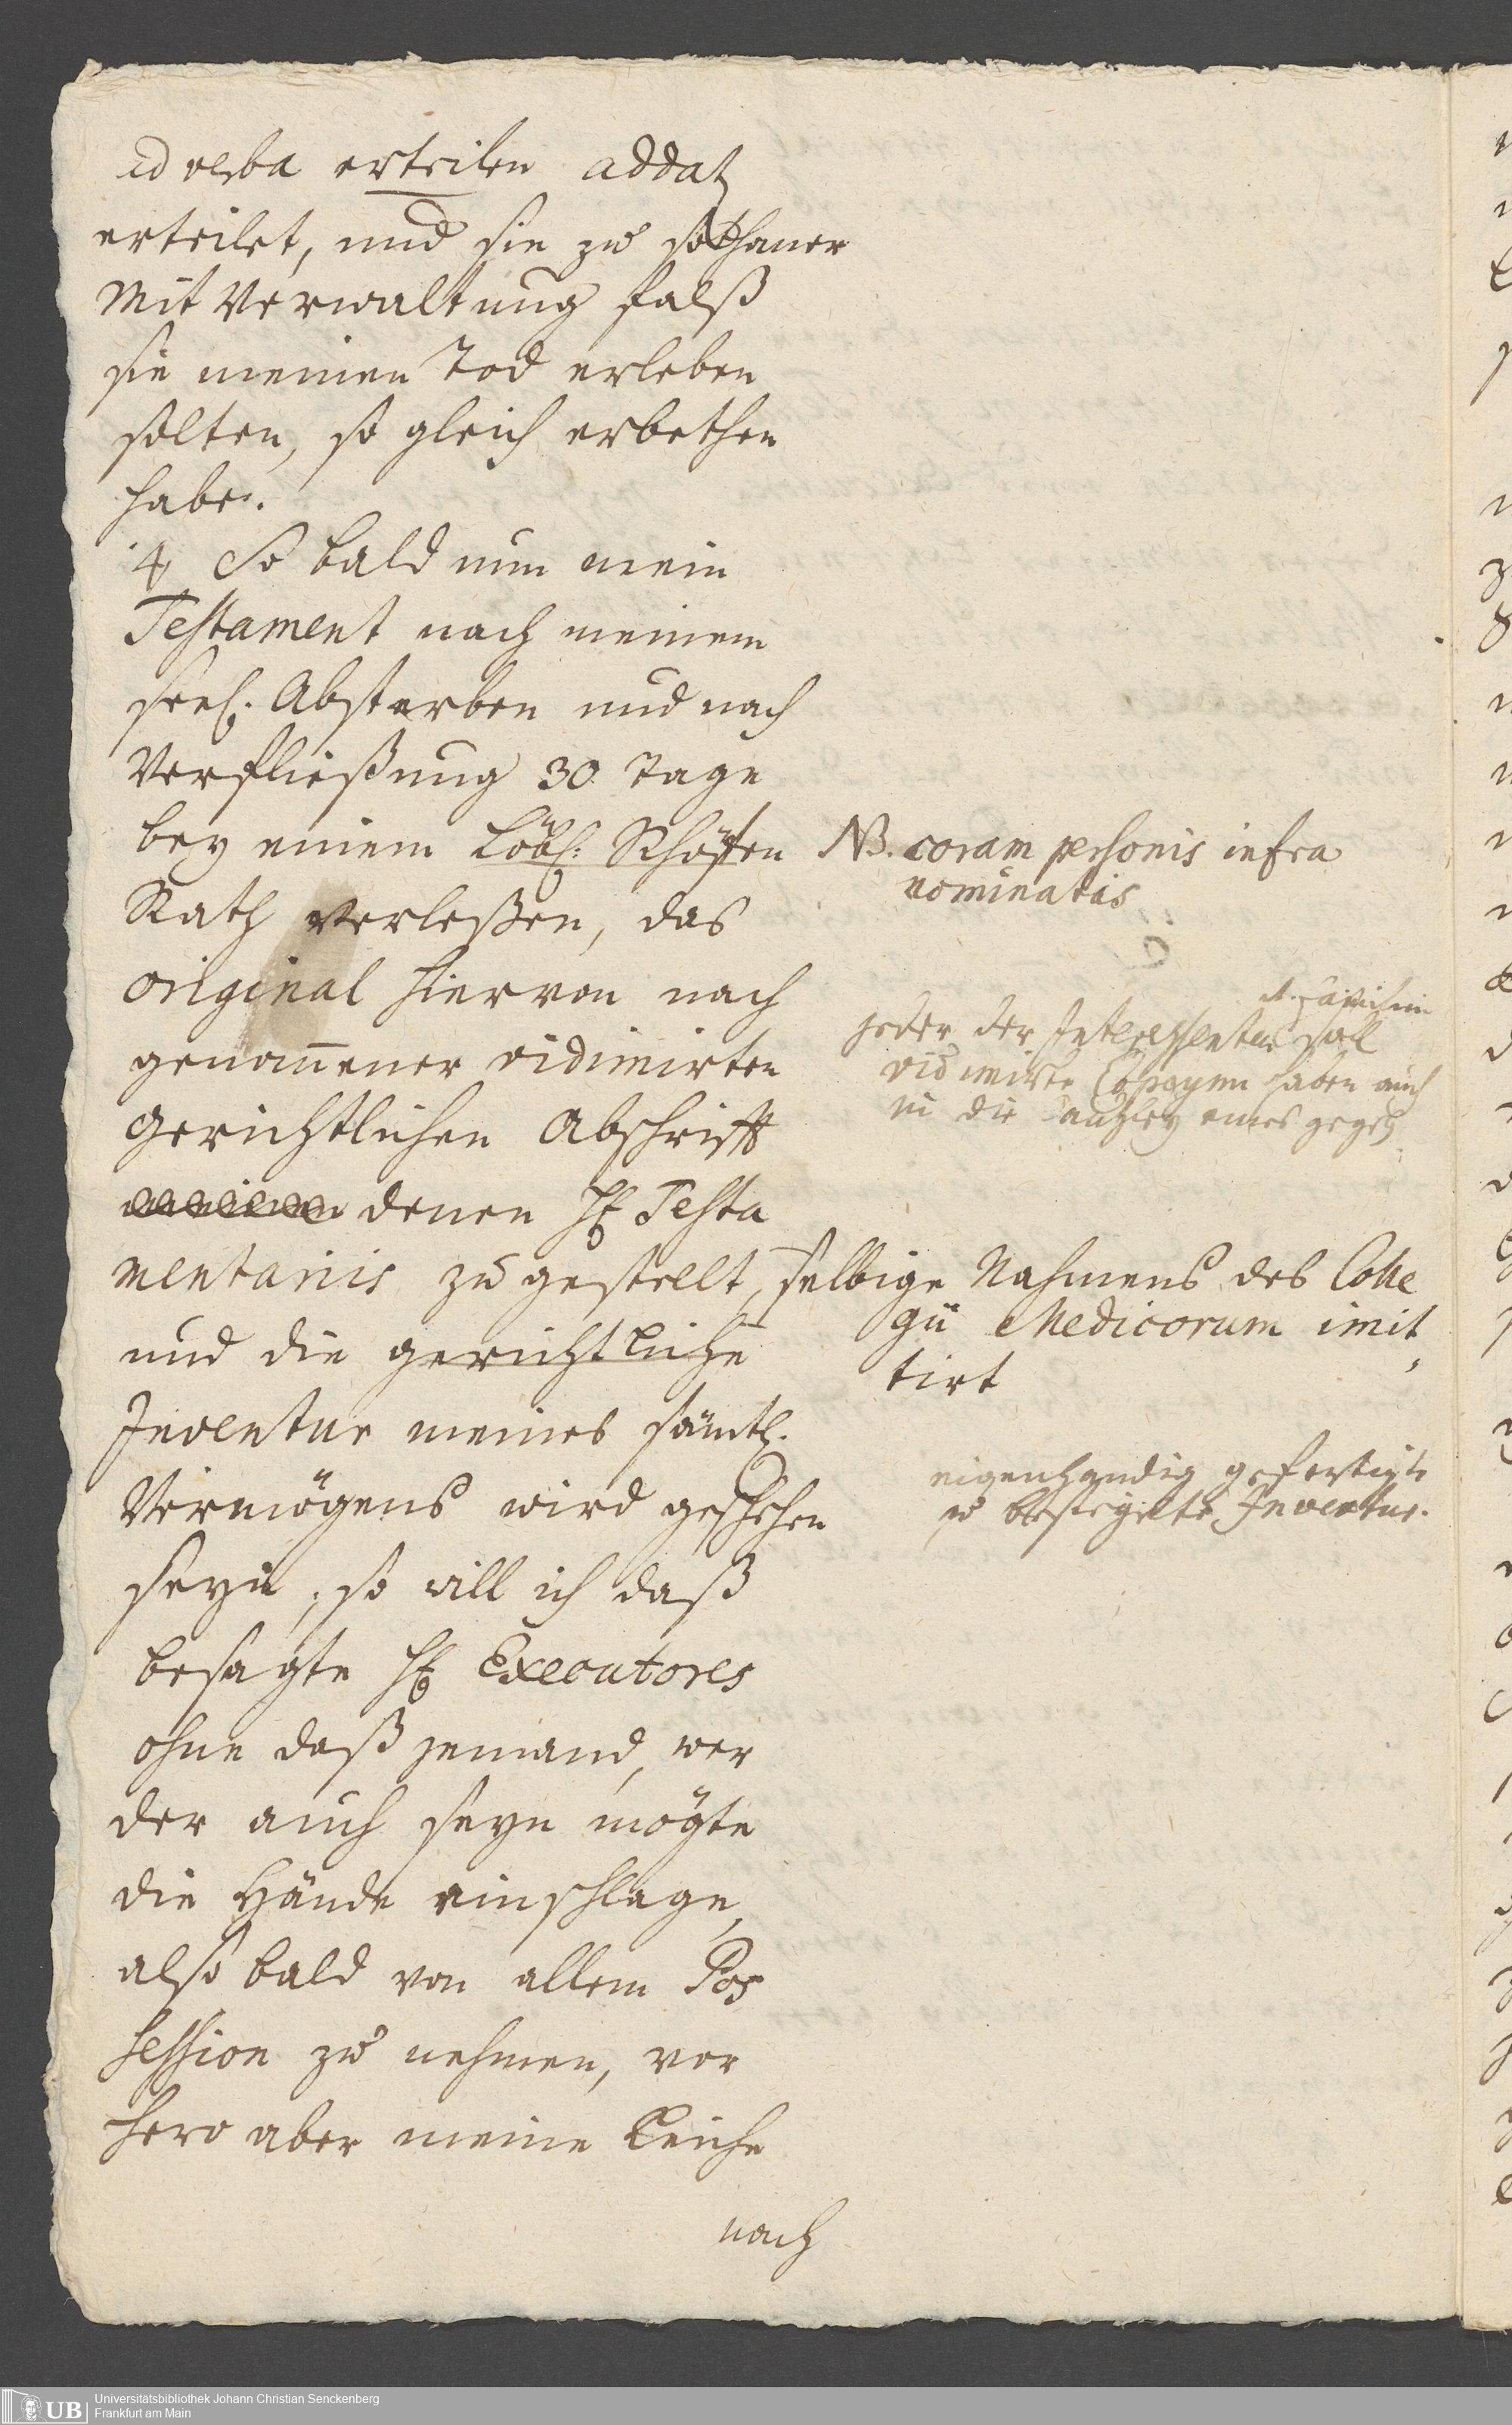 ad verba erteilen addatz
erteilet, und sie zu sothaner
Mit Verwaltung falß
sie meinen Tod erleben
solten, so gleich erbethen
habe.
4, So bald nun mein
Testament nach meinem
seel. Absterben und nach
Verfließung 30. Tage
bey einem Löbl: Schöffen
Rath verleßen, das
original hiervon nach
genom̄ener vidimirten
gerichtlichen Abschrifft
denen H Testa
mentariis zu gestellt,
und die gerichtliche
Inventur meines sämtl.
Vermögens wird geschehen
seyn, so will ich daß
besagte H Executores
ohne daß jemand, wer
der auch seyn mögte
die Hände einschlage,
also bald von allem Pos
session zu nehmen, vor
hero aber meine Leiche
nach
NB. coram personis infra
nominatis
jeder der Interessenten soll
vidimirte Copayen haben auch
in die Canzley eines gegeb
selbige Nahmens des Colle
gii Medicorum imit
tirt
eigenhändig gefertigte
u besiegelte Inventur.
Universitätsbibliothek Johann Christian Senckenberg
Frankfurt am Main
UB